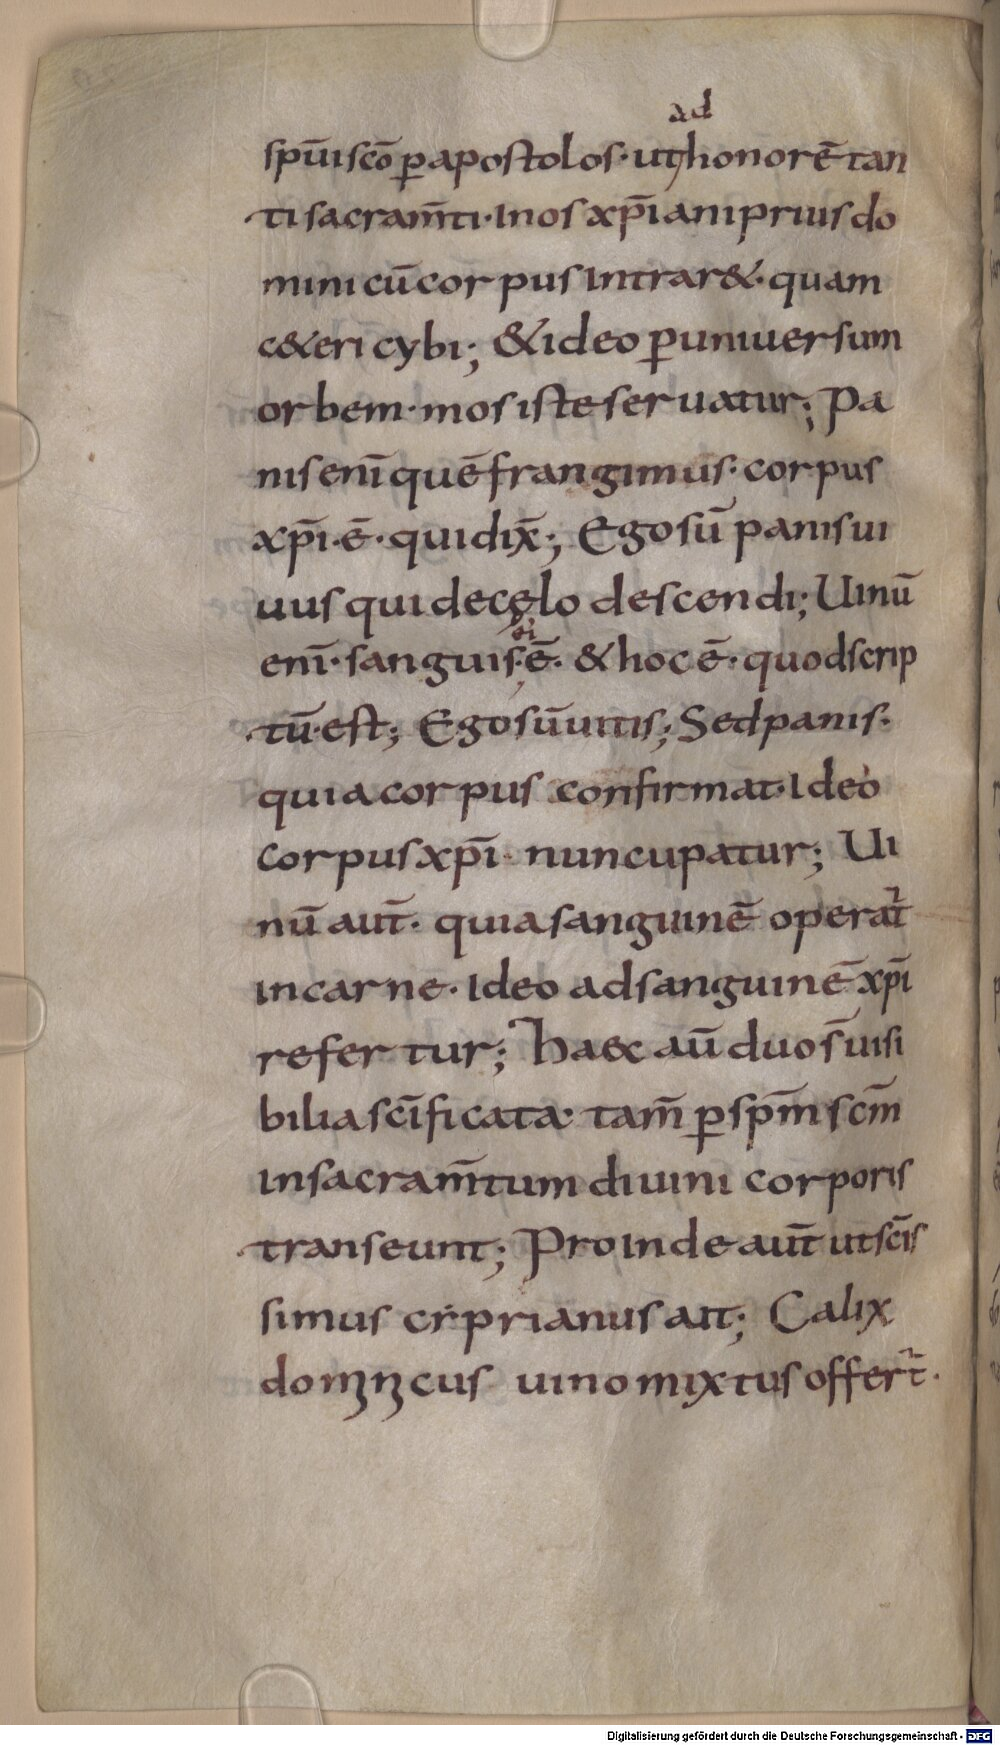 ad
spūi scō ꝑ apostolos· ut honorē tan
ti sacram̄ti· In os xp̄iani prius do
minicū corpus Intrar&· quam
c&eri cybi; &ideo ꝑ uniuersum
orbem· mos iste seruatur; Pa
nis enī quē frangimus· corpus
xp̄i·ē· qui dix̄; Ego sū panis ui
uus qui de cęlo descendi; Uinū
ei
enī· sanguis·ē· & hoc ē· quod scrip
tū·est; Ego sū uitis; Sed panis·
quia corpus confirmat· Ideo
corpus xp̄i· nuncupatur; Ui
nū aut̄· quia sanguinē operat̄
in carne· Ideo ad sanguinē xp̄i
refertur; Haec aū duo s̄ uisi
bilia scīficata· tam̄ ꝑ sp̄m scm̄
in sacram̄tum diuini corporis
transeunt; Proinde aut̄ ut scīs
simus cyprianus ait; Calix
dominicus uino mixtus offert̄·
Digitalisierung gefördert durch die Deutsche Forschungsgemeinschaft - DFG